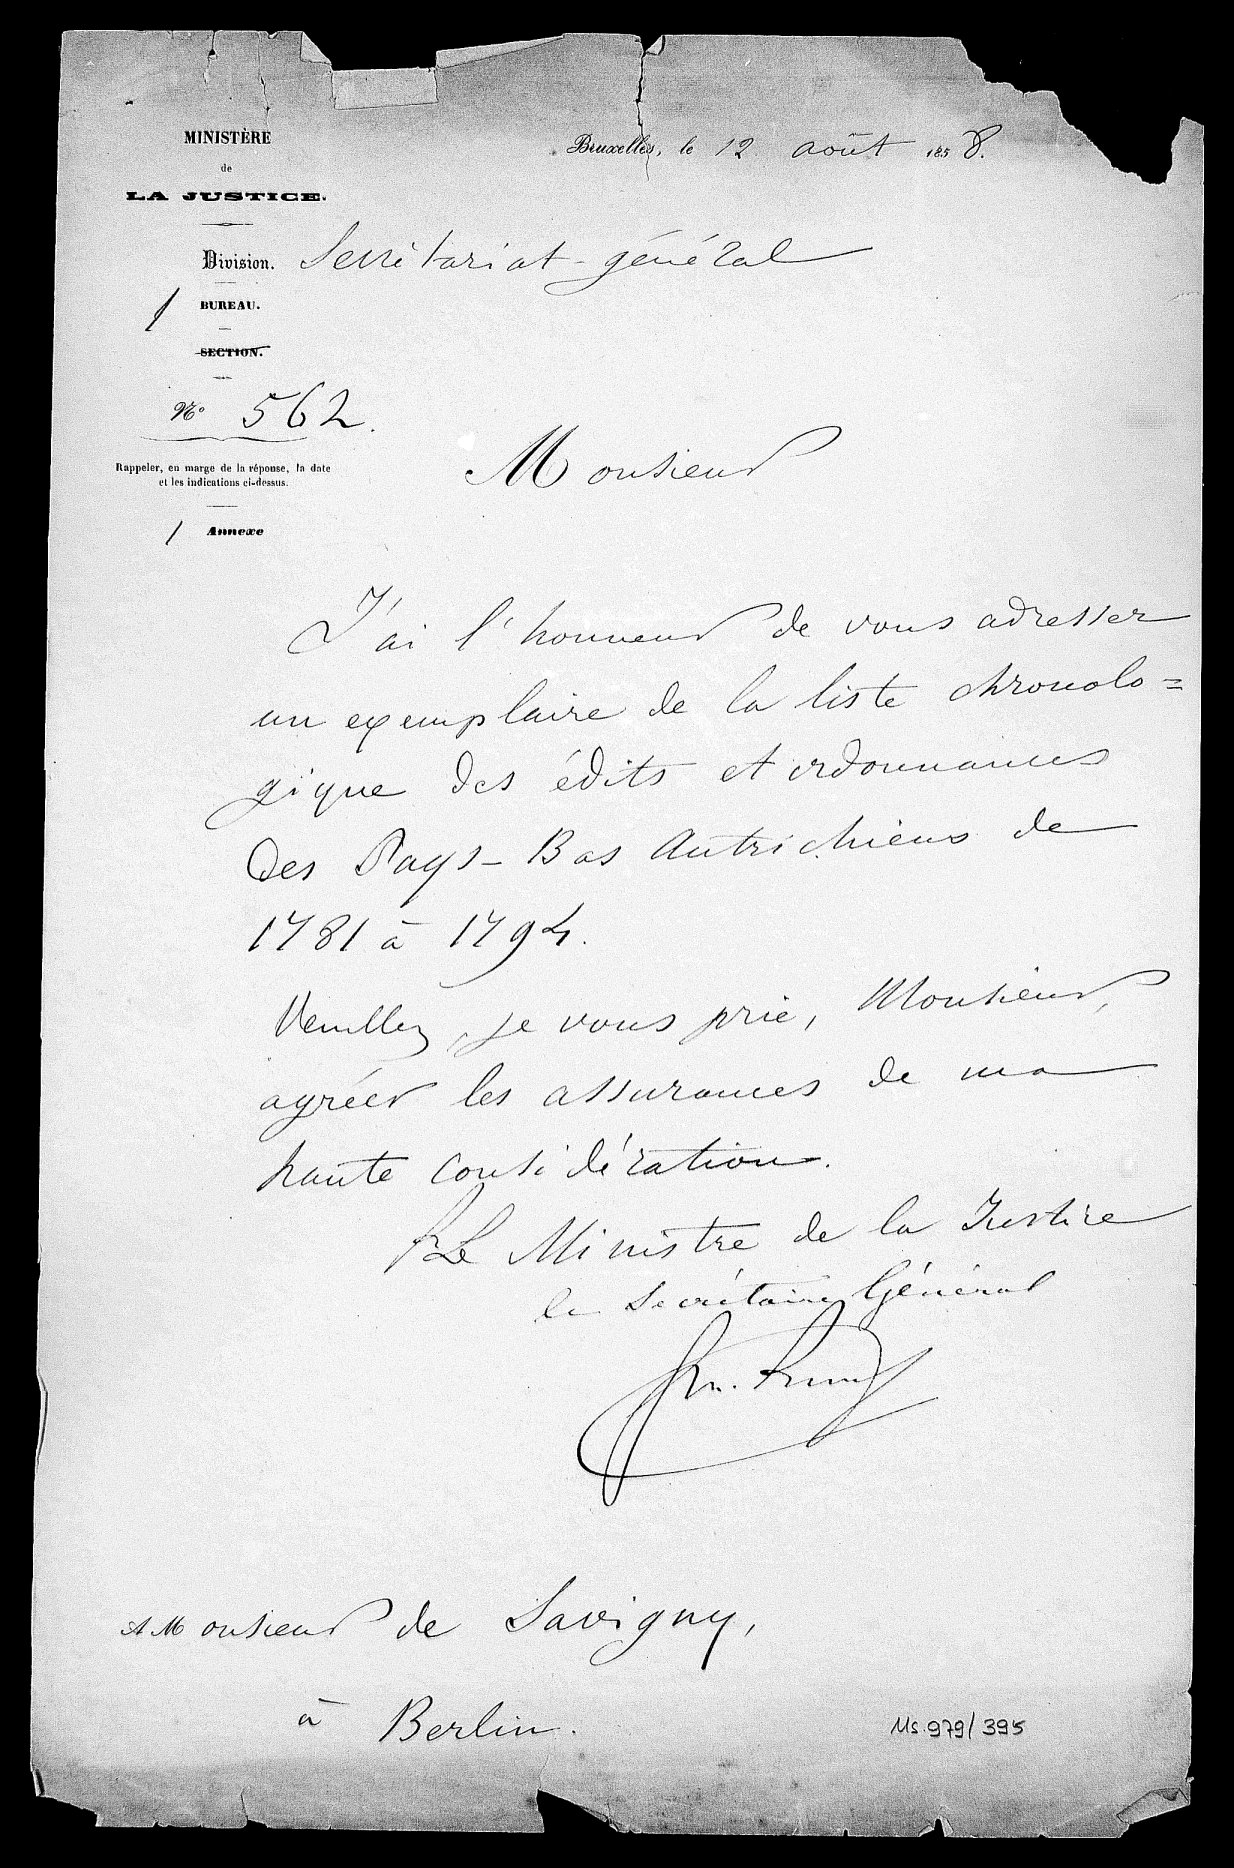 MINISTÈRE
de
LA JUSTICE.
Bruxelles, le 12 août 1858.
Division. Secrétariat-général
1 BUREAU.
SECTION.
No 562.
Rappeler, en marge de la réponse, la date
et les indications ci-dessus.
1 Annexe
Monsieur
J'ai l'honneur de vous adresser
un exemplaire de la liste chronolo=
gique des édits et ordonnances
des Pays-Bas Autrichiens de
1781 à 1794.
Veuillez, je vous prie, Monsieur,
agréer les assurances de ma
haute considération.
Le Ministre de la Justice
le Secrétaire Général
A Monsieur de Savigny,
à Berlin.
Ms. 979/395